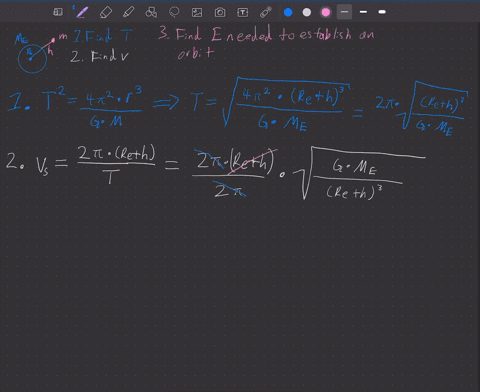 M_E m 1. Find T 3. Find E needed to establish an
R_e h 2. Find v orbit
1. T² = 4π²·r³ / G·M ⟹ T = √(4π²·(Re+h)³ / G·M_E) = 2π·√((Re+h)³ / G·M_E)
2. V_s = 2π·(Re+h) / T = 2π·(Re+h) / 2π · √(G·M_E / (Re+h)³)